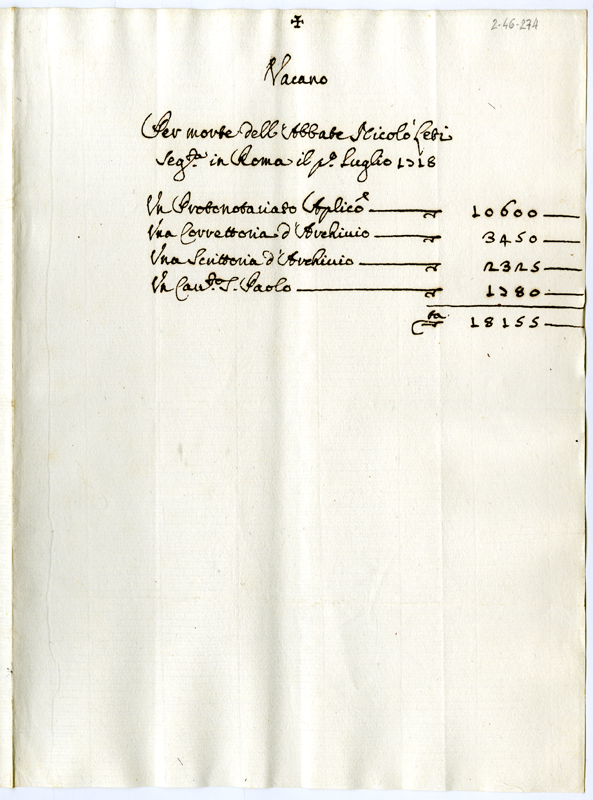 ✠
2-46-274
Vacano
Per morte dell'Abbate Nicolò Leti
seg.ta in Roma il p.o Luglio 1718
Un Protonotariato Aplicõ 10600
Una Correttoria d'Archivio 3450
Una Scrittoria d'Archivio 2325
Un Cau.to S. Paolo 1780
18155